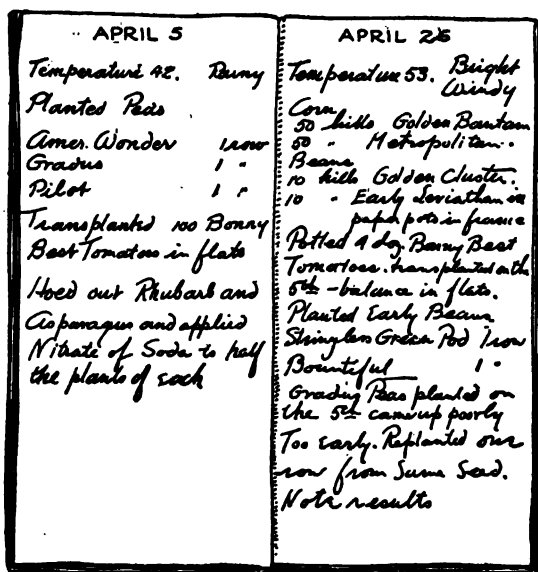 APRIL 5
Temperature 42. Rainy
Planted Peas
Amer. Wonder 1 row
Gradus 1 "
Pilot 1 "
Transplanted 100 Bonny
Best Tomatoes in flats
Hoed out Rhubarb and
Asparagus and applied
Nitrate of Soda to half
the plants of each
APRIL 26
Temperature 53. Bright
Windy
Corn
50 hills Golden Bantam
50 " Metropolitan "
Beans
10 hills Golden Cluster.
10 " Early Leviathan in
paper pots in frame
Potted 4 doz. Bonny Best
Tomatoes. transplanted on the
5th - balance in flats.
Planted Early Beans
Stringless Green Pod 1 row
Bountiful 1 "
Gradus Peas planted on
the 5th came up poorly
Too early. Replanted one
row from Same Seed.
Note results